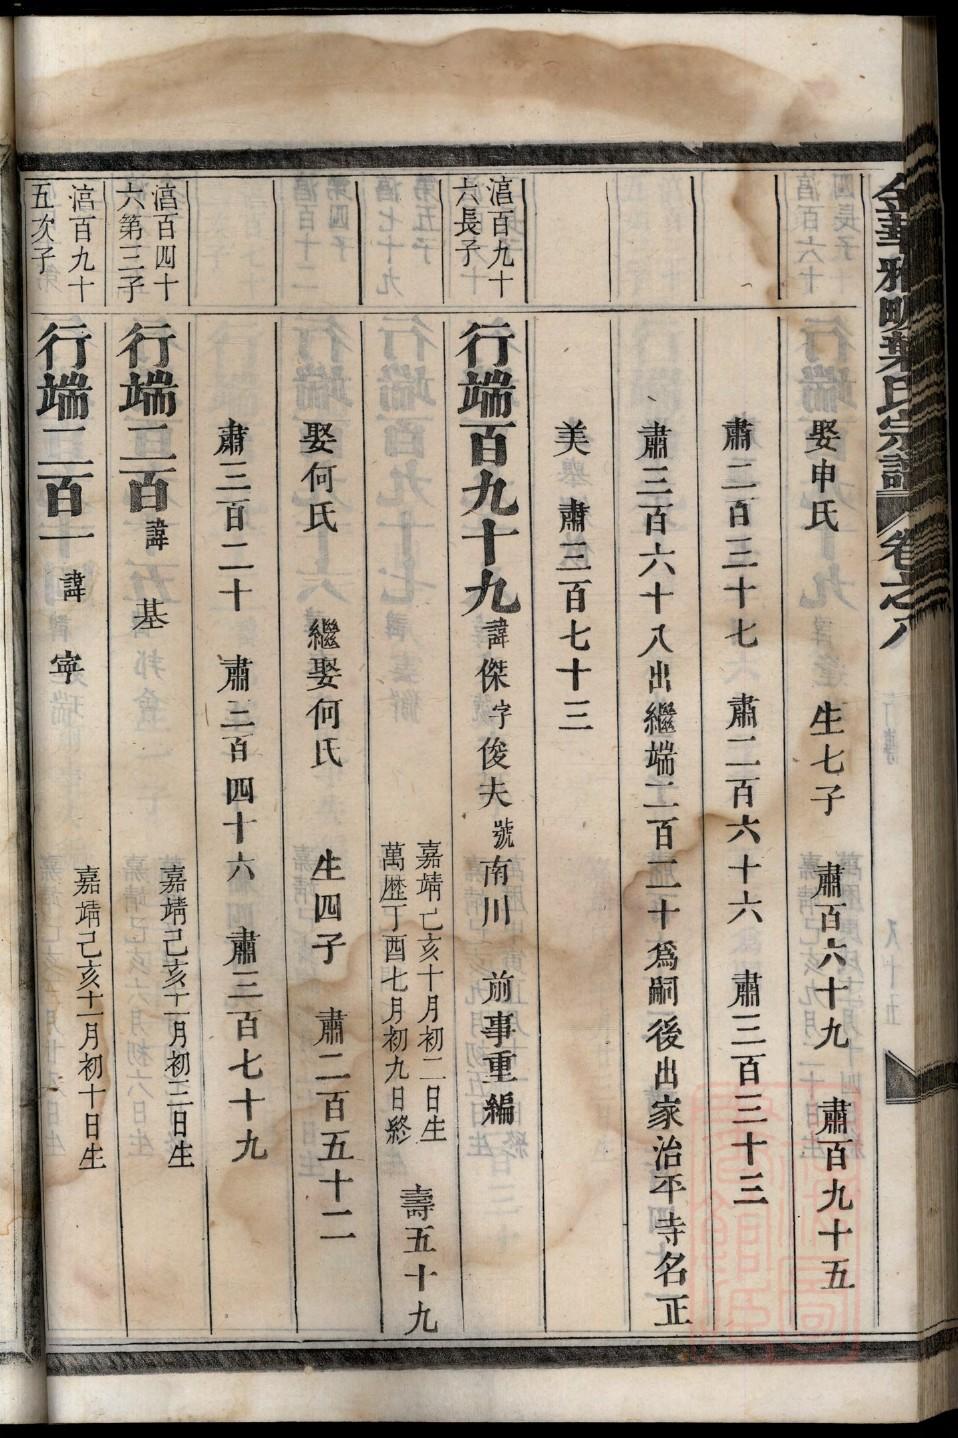 金華雅畈葉氏宗譜 卷之八
娶申氏 生七子 肅百六十九 肅百九十五
肅二百三十七 肅二百六十六 肅三百三十三
肅三百六十八出繼端二百二十為嗣後出家治平寺名正
美 肅三百七十三
湻百九十
六長子
行端百九十九 諱傑 字俊夫 號南川 前事重編
嘉靖己亥十月初二日生
萬歷丁酉七月初九日終
壽五十九
娶何氏 繼娶何氏 生四子 肅二百五十二
肅三百二十 肅三百四十六 肅三百七十九
湻百四十
六第三子
行端二百 諱基
嘉靖己亥十一月初三日生
湻百九十
五次子
行端二百一 諱寧
嘉靖己亥十一月初十日生